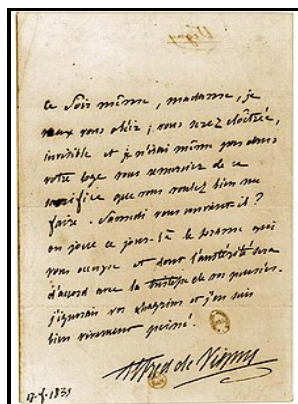 Vigny
ce soir même, madame, je
veux vous obéir ; vous serez cloîtrée,
invisible et je n'irai même pas dans
votre loge vous remercier de ce
sacrifice que vous voulez bien me
faire. Samedi vous convient-il ?
on joue ce jour-là le drame qui
vous occupe et dont l'austérité sera
d'accord avec la tristesse de vos pensées.
j'ignorais vos chagrins et j'en suis
bien vivement peiné.
Alfred de Vigny